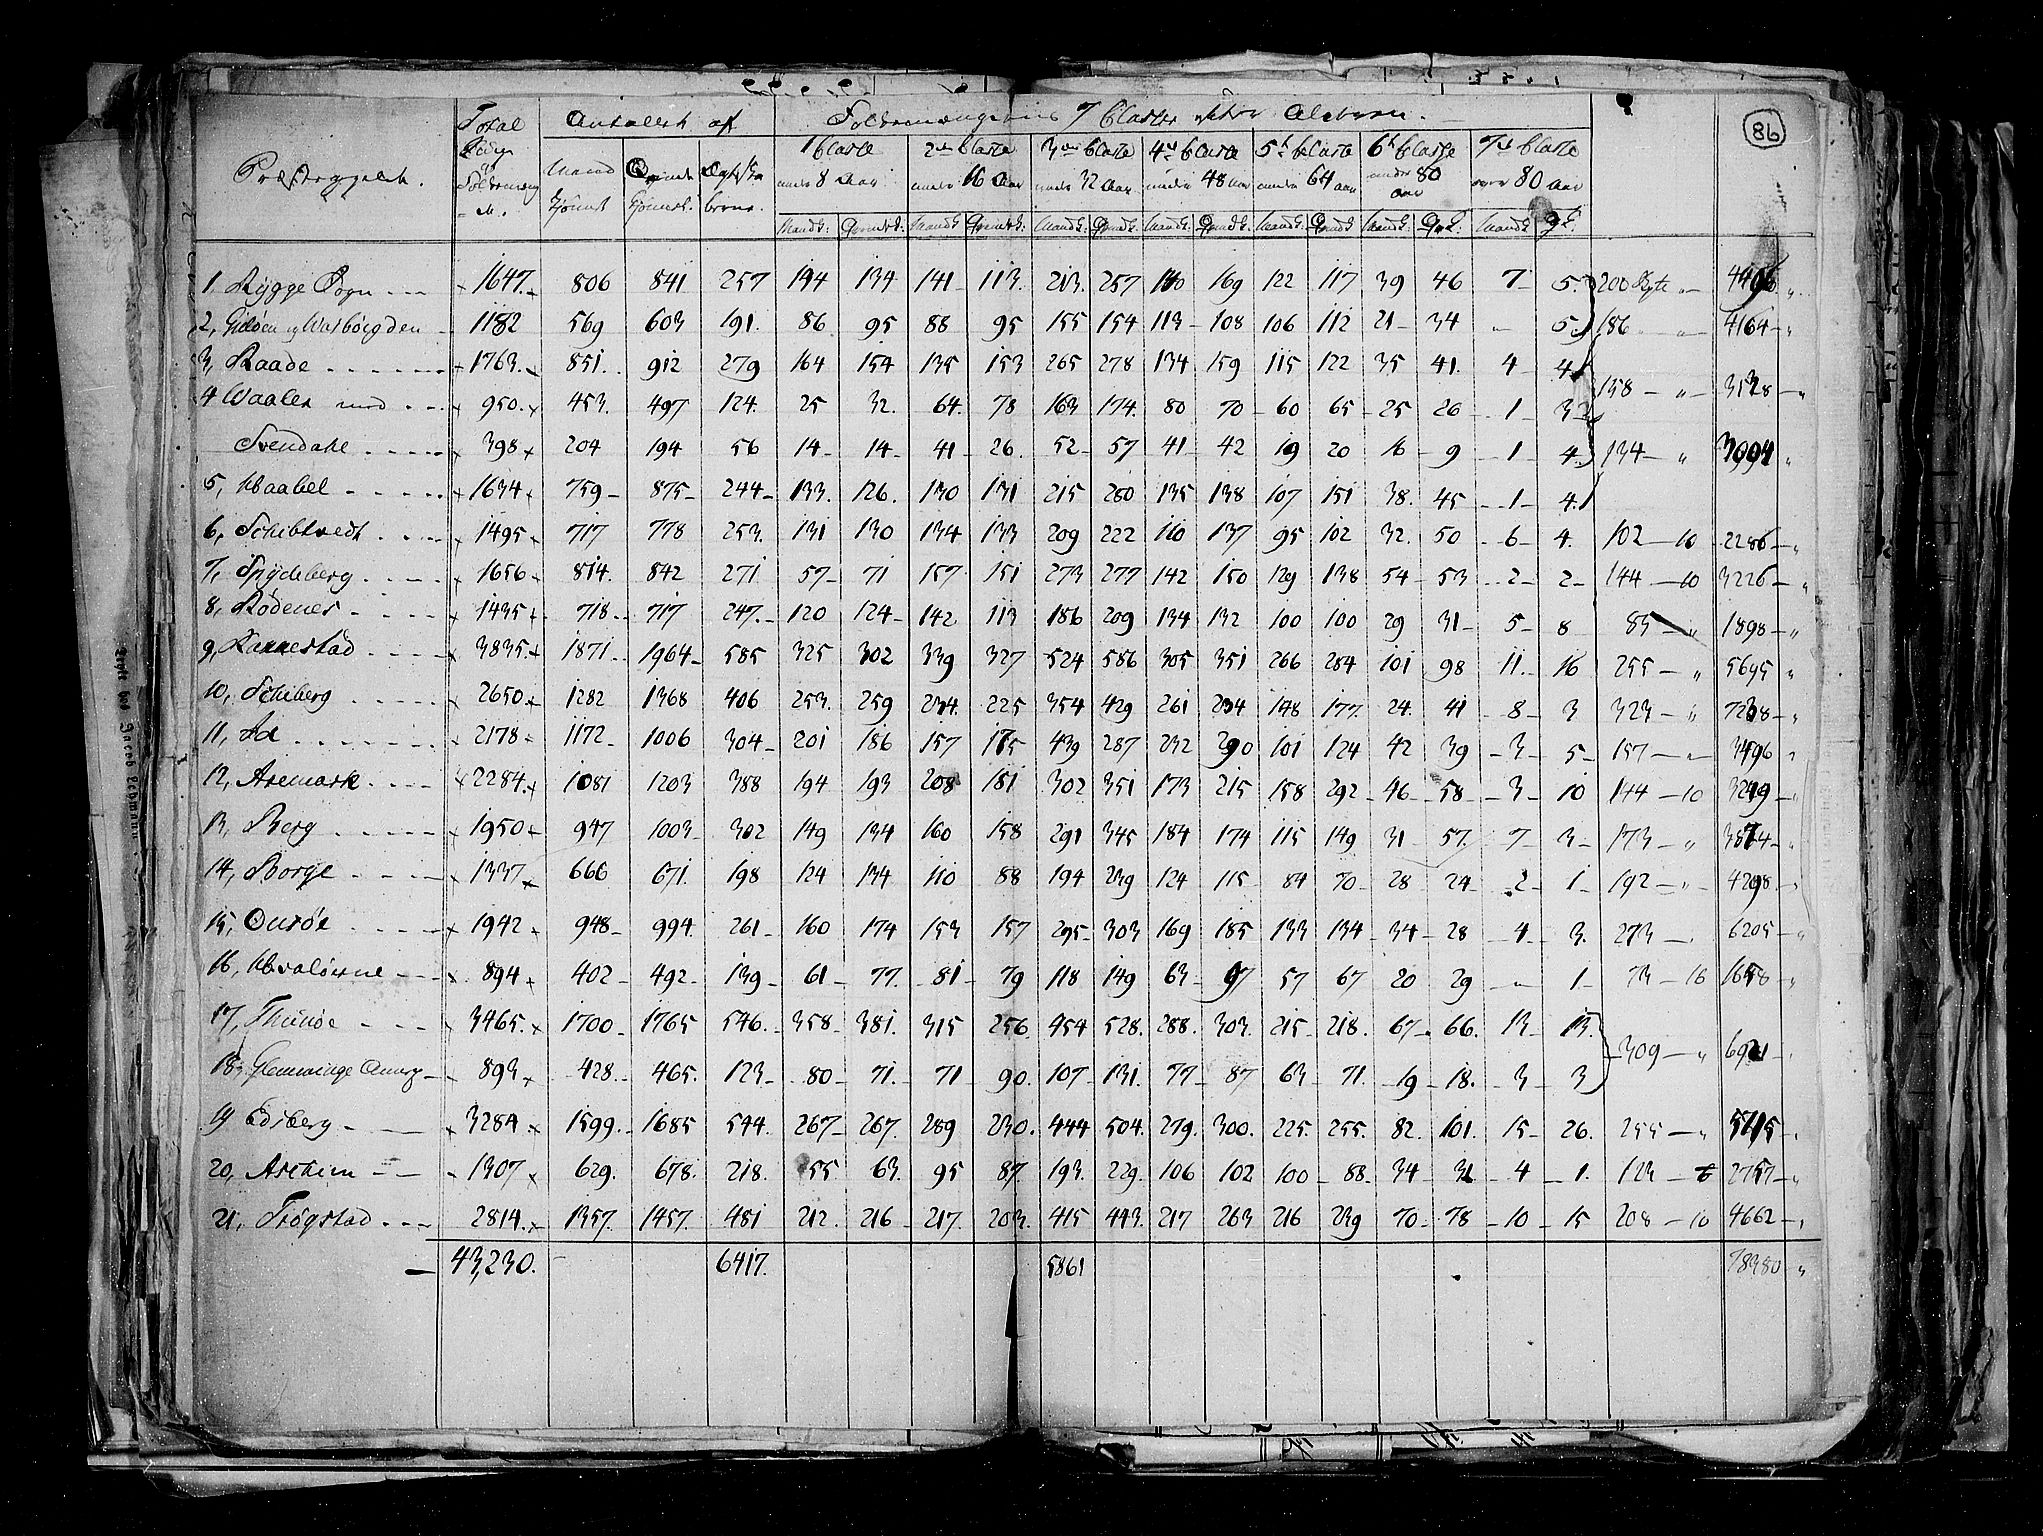 86
Total
Antallet af
7 Classer efter Alderen.
Præstegieldet.
1 Classe 2den Classe 3die Classe 4de Classe 5te Classe 6te Classe 7de Classe
under 8 Aar under 16 Aar under 32 Aar under 48 aar under 64 aar under 80 aar over 80 aar
Mandk: Qvindek: Mandk: Qvindek: Mandk: Qvindk: Mandk: Qvindk: Mandk: Qvindk: Mandk: Qvk: Mandk: Qk:
1, Rygge Sogn - - - 1647. 806 841 257 144 134 141 113. 213. 257 140 169 122 117 39 46 7 5. 200 " 
2, 1182 569 603 191. 86 95 88 95 155 154 113 108 106 112 21 34 " 5. 186 " 4164 "
3, Raade - - - 1763. 851. 912 279 164 154 135 153 265 278 134 159 115 122 35 41. 4 4
158 " 3128 "
4 Waaler med - - 950. 453. 497 124. 25 32. 64. 78 163 174. 80 70 60 65 25 26 1 3
Svendale - - - 398 204 194 56 14 14 41 26. 52 57 41 42 19 20 16 9 1 4. 134 " 3094 "
5, Haabel - - - 1634 759 875 244 133. 126. 130 131 215 280 135 138 107 151 38. 45 1 4.
6, Schibtvedt - - - 1495 717 778 253. 131 130 134 133 209 222 110 137 95 102 32. 50 6 4. 102 10 2286 "
7, Spydeberg - - - 1656 814. 842 271 57 71 157 151 273 277 142 150 129 138 54 53 2 2 144 10 3226 "
8, Rødenes - - - 1435 718 717 247. 120 124 142 113 186 209 134 132 100 100 29 31 5 8 85 " 1898 "
9, Rakkestad - - - 3835. 1871 1964 585 325 302 339 327 524 586 305 351 266 284 101 98 11. 16 255 " 5695 "
10, Schiberg - - - 2650 1282 1368 406 253. 259 234. 225 354 429 261 204 148 177 24. 41 8 3 323 " 7208 "
11, Id - - - 2178 1172 1006 304 201 186 157 175 439 287 232 290 101 124 42 39 3 5 157 " 3496 "
12, Aremark - - - 2284. 1081 1203 388 194 193 208 181 302 351 173 215 158 292 46 58 3 10 144 10 3219 "
13, Berg - - - 1950 947 1003 302 149 134 160 158 291 345 184 174 115 149 31 57. 7 3 173 " 3874 "
14, Borge - - - 1337 666 671. 198 124 134 110 88 194 239 124 115 84 70 28 24 2 1 192 " 4298 "
15, Onsøe - - - 1942 948 994. 261 160 174 153 157 295 303 169 185 133 134 34 28 4 3. 273 6205 "
16, Hvaløerne - - 894 402 492 139 61 77. 81 79 118 149 63 97 57 67 20 29 " 1 73 16 1658 "
17, Thunøe - - - 3465. 1700 1765 546. 358 381. 315 256 454 528. 288. 303. 215 218. 67 66. 13 13.
309 " 6921
18, Glemminge Annex 893 428 465. 123 80 71. 71 90. 107 131. 77 87 63 71. 19 18. 3 3
19 Edsberg - - 3284 1599. 1685 544. 267 267. 289 230. 444 504. 279. 300. 225. 255. 82. 101. 15 26. 255 " 5715
20, Aschim - - 1307 629. 678. 218. 55 63. 95 87. 193. 229. 106 102 100 88 34 31 4 1. 123 6 2757 "
21, Trøgstad - - - 2814. 1357. 1457. 481 212. 216 217. 203. 415 443. 217 263 216 239 70 78 10 15 208 10 4662 "
43,230. 6417. 5861 78980 "